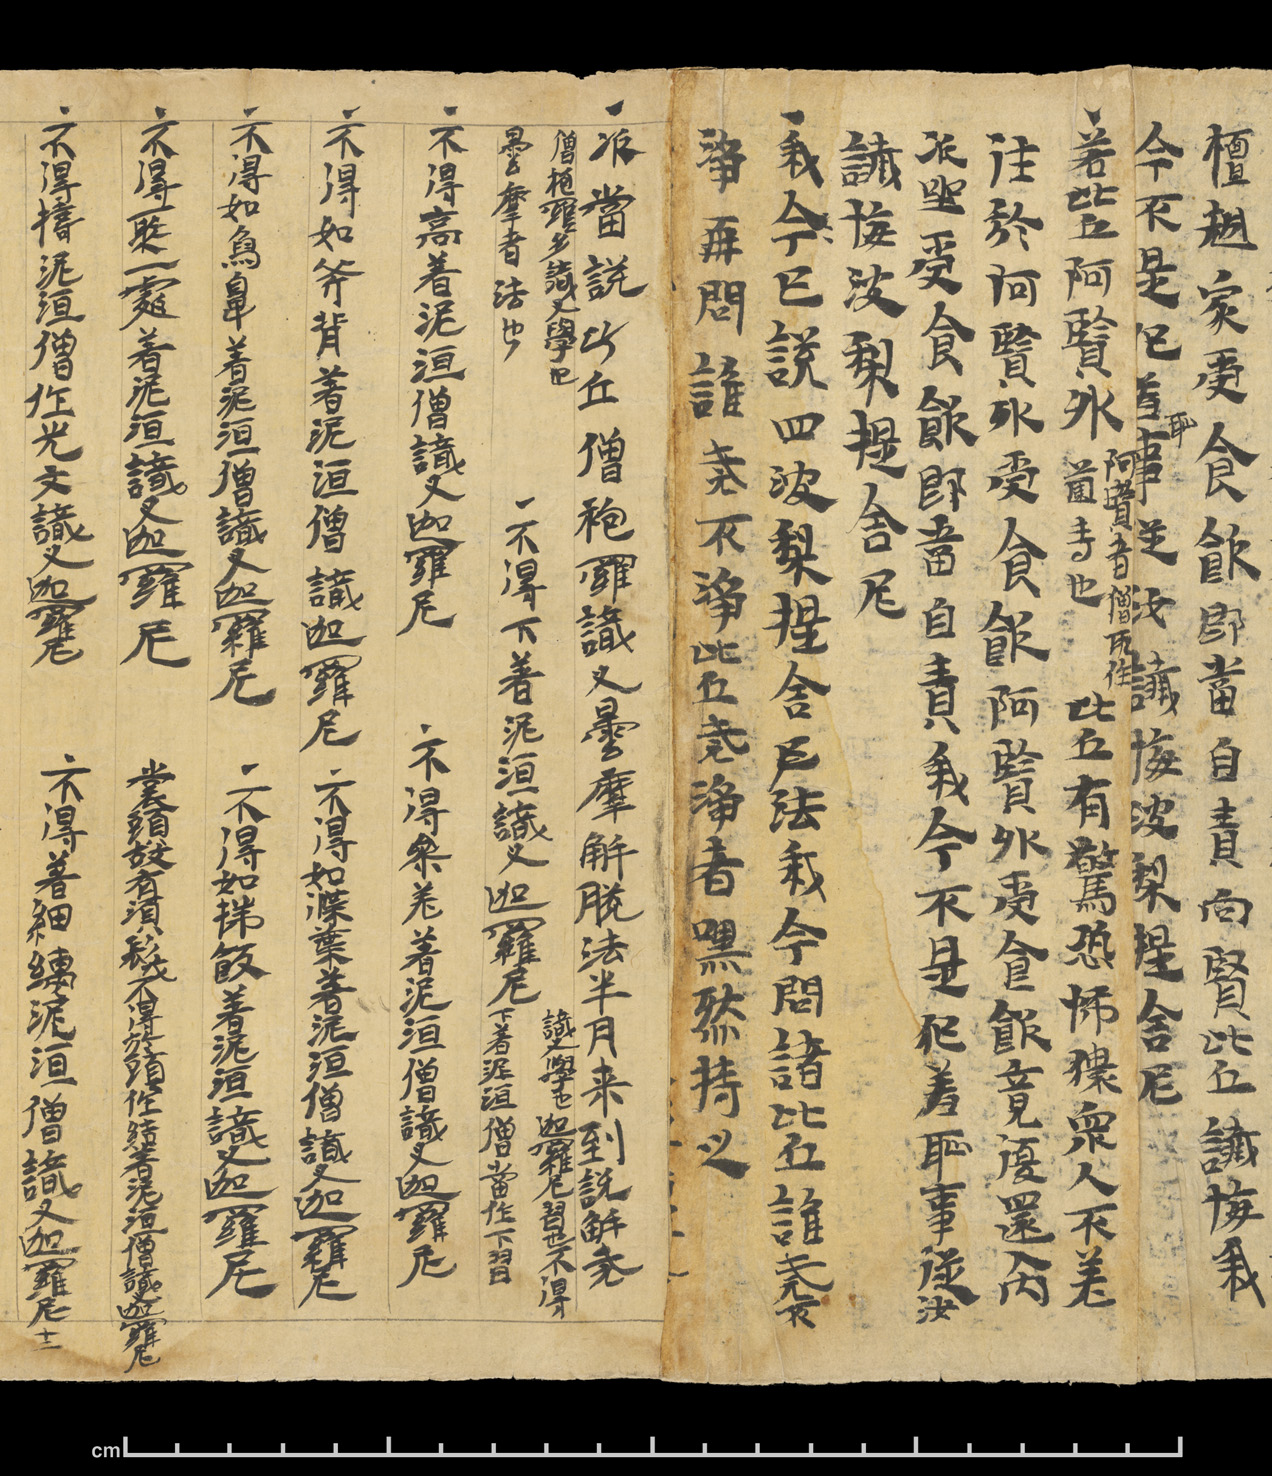 檀越家受食飲即當自責向賢比丘懺悔我
今不是犯羞恥事從汝懺悔波梨提舍尼
若比丘阿賢外阿賢者僧所住
薗寺也比丘有驚恐怖獷衆人不差
往於阿賢外受食飲阿賢外受食飲竟還入内
派聖受食飲即當自責我今不是犯羞恥事從汝
懺悔波梨提舍尼
我今已說四波梨提舍尼法我今問諸比丘誰堯不
淨再問誰堯不淨比丘堯淨者嘿然持之
派當說比丘僧袍羅識叉曇摩解脫法半月来到說解堯
僧袍羅多識叉學也
曇摩者法也
不得下著泥洹識叉迦羅尼
識叉學也迦羅尼習也不得
下著泥洹僧當作下習
不得高著泥洹僧識叉迦羅尼
不得參差著泥洹僧識叉迦羅尼
不得如斧背著泥洹僧識迦羅尼
不得如㵩葉著泥洹僧識叉迦羅尼
不得如鳥鼻著泥洹僧識叉迦羅尼
不得如飯著泥洹識叉迦羅尼
不得聚一處著泥洹識叉迦羅尼
頭故有不得於頭作結著泥洹僧識迦羅尼
不得擣泥洹僧作光文識叉迦羅尼
不得著細縷泥洹僧識叉迦羅尼十二
cm